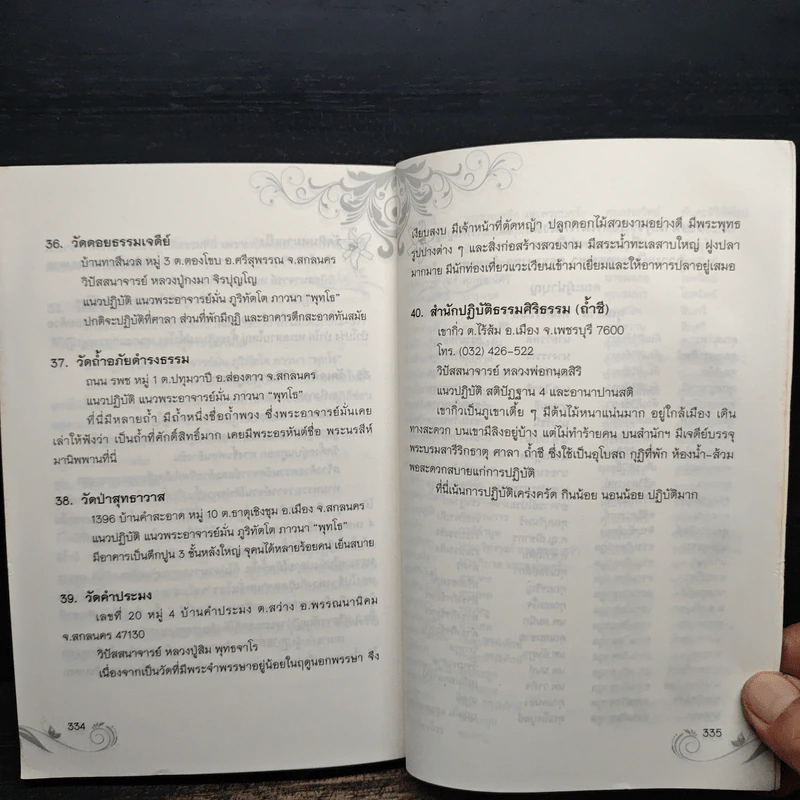 36. วัดดอยธรรมเจดีย์
บ้านทาสีนวล หมู่ 3 ต.ตองโขบ อ.ศรีสุพรรณ จ.สกลนคร
วิปัสสนาจารย์ หลวงปู่กงมา จิรปุญโญ
แนวปฏิบัติ แนวพระอาจารย์มั่น ภูริทัตโต ภาวนา "พุทโธ"
ปกติจะปฏิบัติที่ศาลา ส่วนที่พักมีกุฏิ และอาคารตึกสะอาดทันสมัย
37. วัดถ้ำอภัยดำรงธรรม
ถนน รพช หมู่ 1 ต.ปทุมวาปี อ.ส่องดาว จ.สกลนคร
แนวปฏิบัติ แนวพระอาจารย์มั่น ภาวนา "พุทโธ"
ที่นี่มีหลายถ้ำ มีถ้ำหนึ่งชื่อถ้ำพวง ซึ่งพระอาจารย์มั่นเคย
เล่าให้ฟังว่า เป็นถ้ำที่ศักดิ์สิทธิ์มาก เคยมีพระอรหันต์ชื่อ พระนรสีห์
มานิพพานที่นี่
38. วัดป่าสุทธาวาส
1396 บ้านคำสะอาด หมู่ 10 ต.ธาตุเชิงชุม อ.เมือง จ.สกลนคร
แนวปฏิบัติ แนวพระอาจารย์มั่น ภูริทัตโต ภาวนา "พุทโธ"
มีอาคารเป็นตึกปูน 3 ชั้นหลังใหญ่ จุคนได้หลายร้อยคน เย็นสบาย
39. วัดคำประมง
เลขที่ 20 หมู่ 4 บ้านคำประมง ต.สว่าง อ.พรรณนานิคม
จ.สกลนคร 47130
วิปัสสนาจารย์ หลวงปู่สิม พุทธจาโร
เนื่องจากเป็นวัดที่มีพระจำพรรษาอยู่น้อยในฤดูนอกพรรษา จึง
334
เงียบสงบ มีเจ้าหน้าที่ตัดหญ้า ปลูกดอกไม้สวยงามอย่างดี มีพระพุทธ
รูปปางต่าง ๆ และสิ่งก่อสร้างสวยงาม มีสระน้ำทะเลสาบใหญ่ ฝูงปลา
มากมาย มีนักท่องเที่ยวแวะเวียนเข้ามาเยี่ยมและให้อาหารปลาอยู่เสมอ
40. สำนักปฏิบัติธรรมศิริธรรม (ถ้ำชี)
เขากิ่ว ต.ไร่ส้ม อ.เมือง จ.เพชรบุรี 7600
โทร. (032) 426-522
วิปัสสนาจารย์ หลวงพ่อกนฺตสิริ
แนวปฏิบัติ สติปัฏฐาน 4 และอานาปานสติ
เขากิ่วเป็นภูเขาเตี้ย ๆ มีต้นไม้หนาแน่นมาก อยู่ใกล้เมือง เดิน
ทางสะดวก บนเขามีลิงอยู่บ้าง แต่ไม่ทำร้ายคน บนสำนักฯ มีเจดีย์บรรจุ
พระบรมสารีริกธาตุ ศาลา ถ้ำชี ซึ่งใช้เป็นอุโบสถ กุฏิที่พัก ห้องน้ำ-ส้วม
พอสะดวกสบายแก่การปฏิบัติ
ที่นี่เน้นการปฏิบัติเคร่งครัด กินน้อย นอนน้อย ปฏิบัติมาก
335